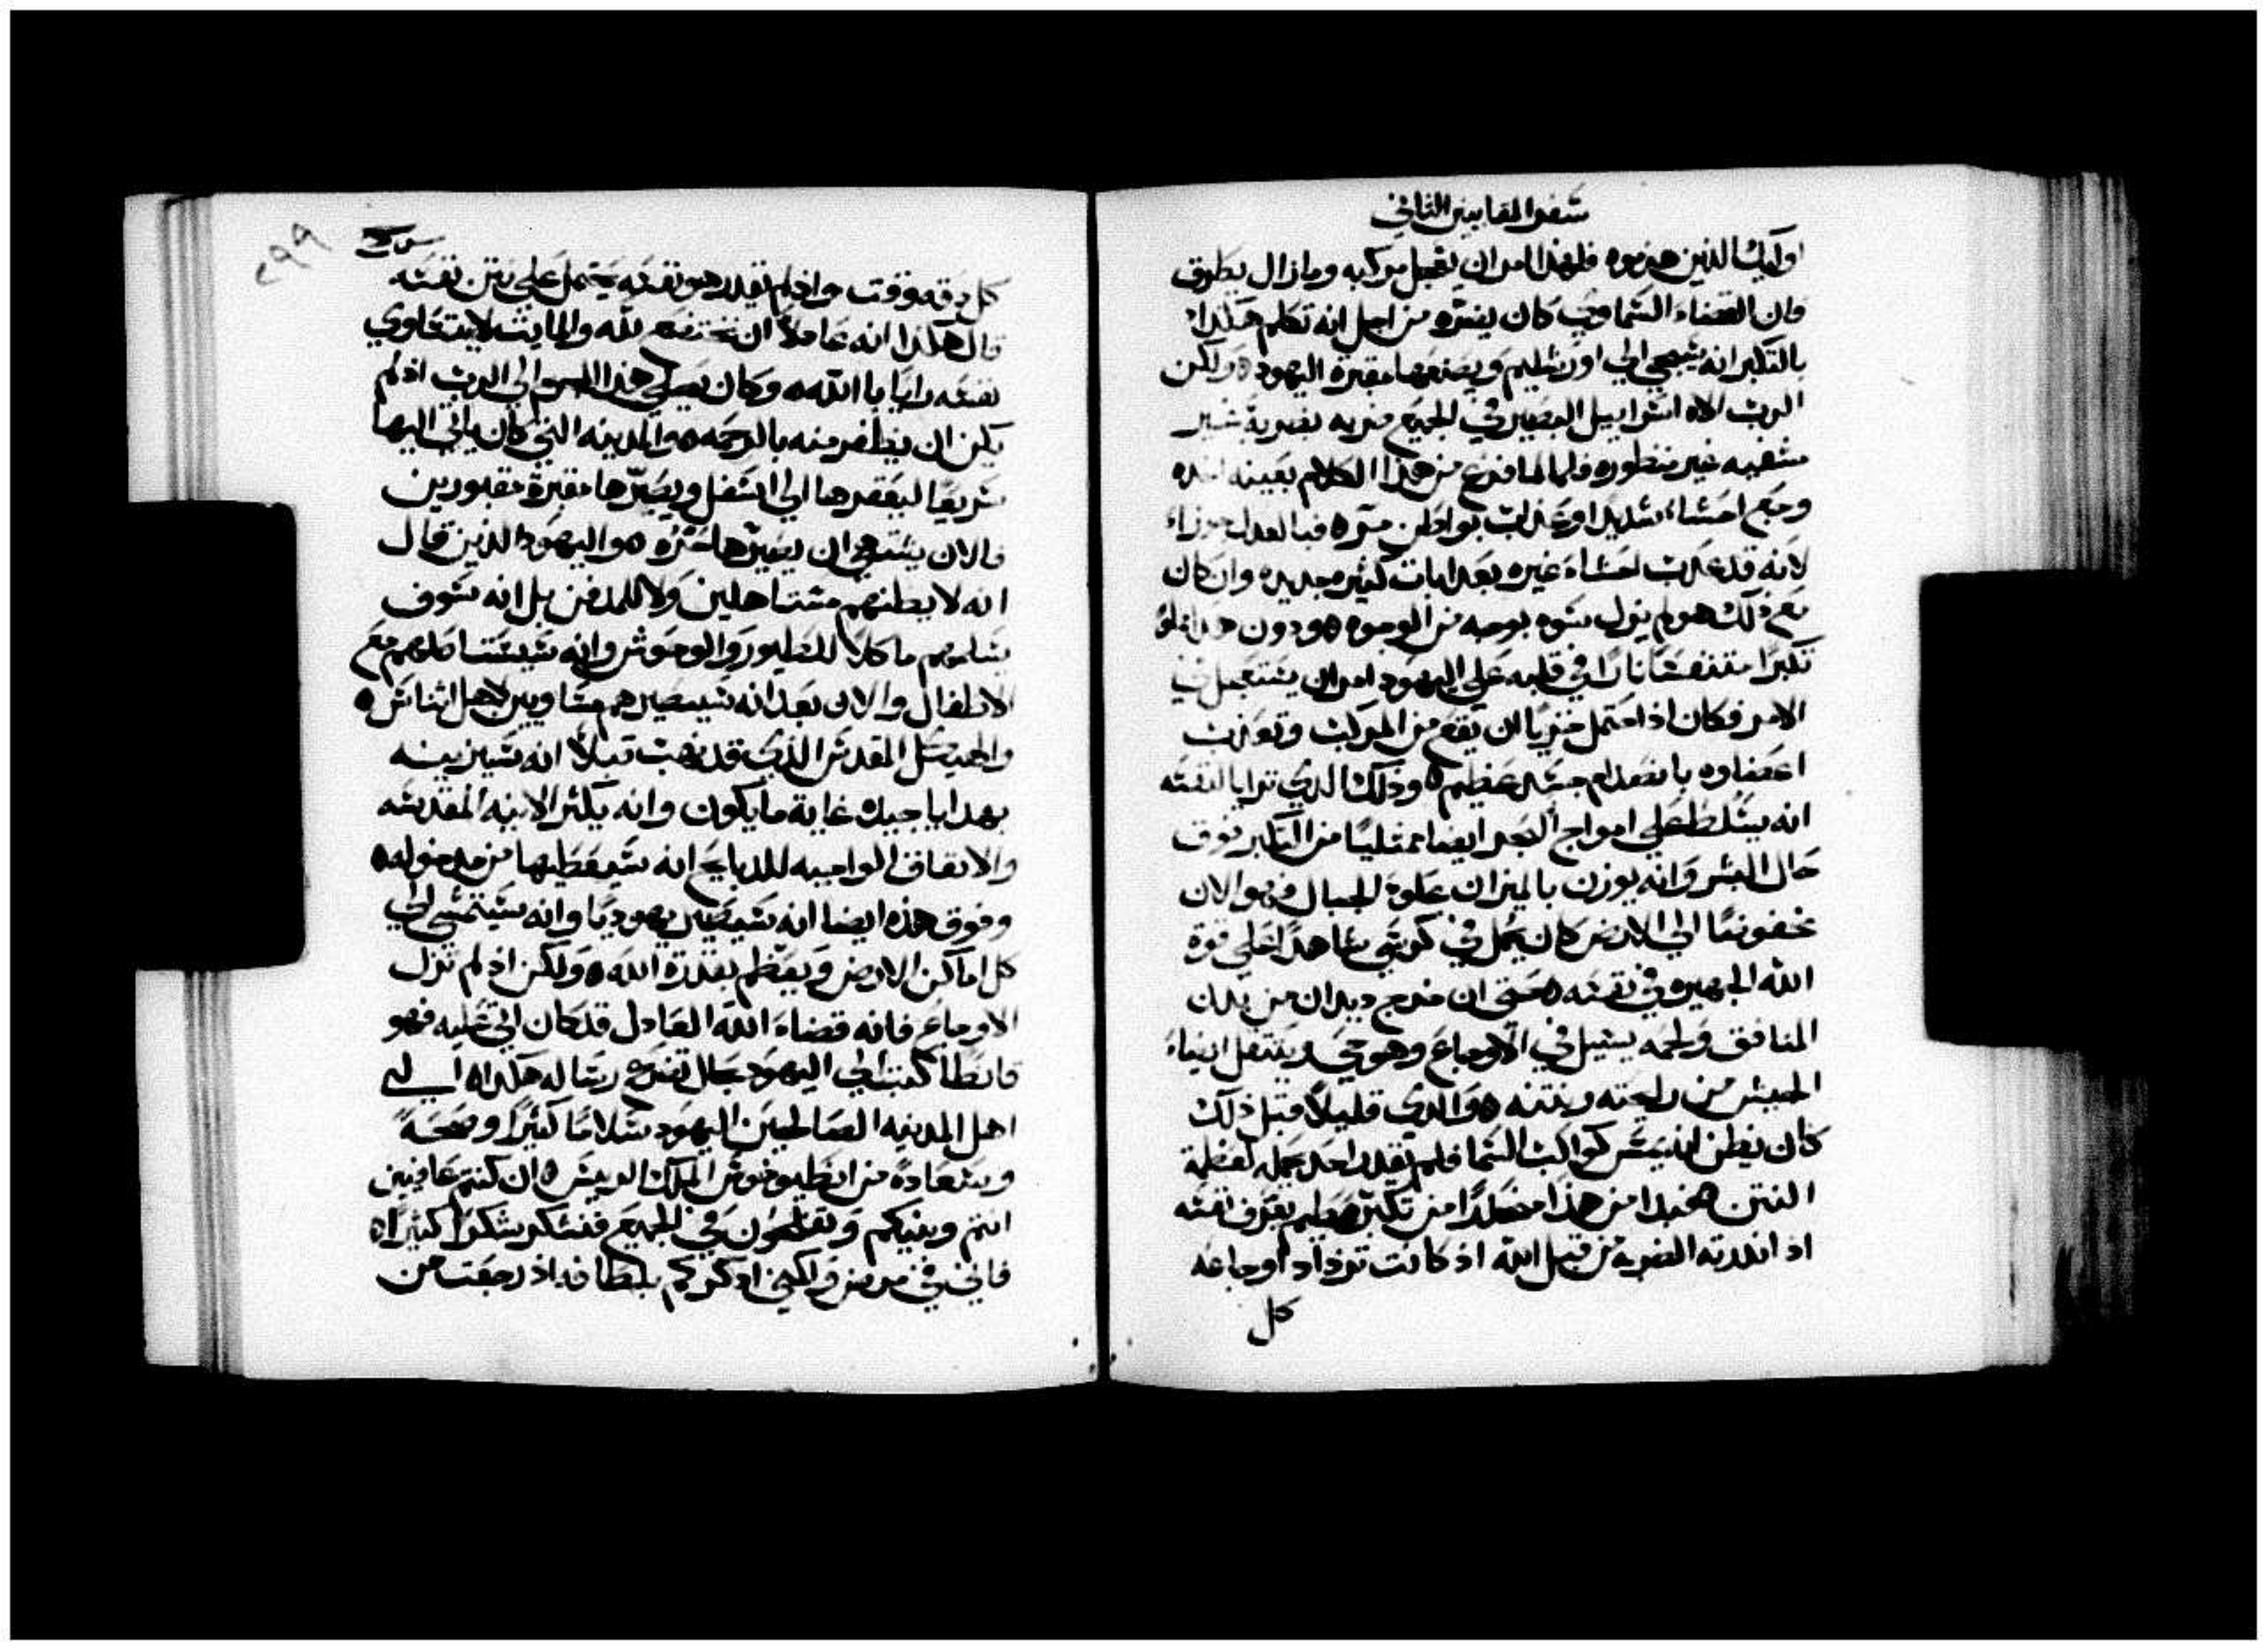 سفر المقابيين الثاني
اوليك الذين هزموه فلهذا امر ان يعجل مركبه وما زال بطريق
فان القضاء السماوي كان يغثره من اجل انه تكلم هكذا
بالتكبر انه سيجي الي اورشليم ويصنعها مقبرة اليهود ولكن
الرب الاه اسراييل البصير في الجميع ضربه بضربة غير
مشفيه غير منظوره فلما فرغ من هذا الكلام بعينه اخذه
وجع احشاء شديد اوعذاب بواطن مره فبالعدل جزاء
لانه قد عذب احشاء غيره بعذابات كثيره جديده وان كان
مع ذلك هو لم يزل بوجه من الوجوه ودون هذا مملو
تكبرا متنفخا نارا في قلبه علي اليهود امر ان يستعجل في
الامر فكان اذ احتمل جريا ان يقع من المركب وتعذبت
اعضاوه بانصدام جسد عظيم وذلك الذي ترايا لنفسه
انه يتسلط علي امواج البحر ايضا ممتليا من التكبر فوق
حال البشر وانه يوزن بالميزان علوة الجبال فهو الان
مخفوضا الي الارض كان يحمل في كرسي شاهدا علي قوة
الله الجهيره في نفسه حتي ان خرج ديدان من بدن
المنافق ولحمه يسيل في الاوجاع وهو حي ويتثقل ايضاء
الجيش من رايحته ونتنه والذي قليلا قبل ذلك
كان يظن انه يمس كواكب السما فلم يقدر احد يحمله لعظمة
النتن فمن هذا منحدرا من تكبر عظيم يعرف نفسه
اذ انذرته الضربه من قبل الله اذ كانت تزداد اوجاعه
كل
٢٩٩
كل دقه وقت واذ لم يقدر هو نفسه يحتمل علي نتن نفسه
قال هكذا انه عادلا ان نخضع لله والمايت لا يتساوي
نفسه برايا بالله وكان يصلي هذا الي الرب اذ لم
يكن ان يظفر منه بالرحمه والمدينه التي كان ياتي اليها
سريعا ليقعرها الي اسفل ويصيرها مقبرة مقبورين
فالان يشتهي ان يصيرها حره واليهود الذين قال
انه لا يظنهم مستاهلين ولا للدفن بل انه سوف
يسلمهم ماكلا للطيور والوحوش وانه سيستاصلهم مع
الاطفال والان بعد انه سيصيرهم مساويين لاهل اثناس
والهيكل المقدس الذي قد نهب قبلا انه سيزينه
بهدايا جيده غاية ما يكون وانه يكثر الانيه المقدسه
والانفاق الواجبه للدبايح انه سيعطيها من مدخوله
وفوق هذه ايضا انه سيصير يهوديا وانه سيتمشي الي
كل اماكن الارض ويعظم بقدرة الله ولكن اذ لم تزل
الاوجاع فانه قضاء الله العادل قد كان اتي عليه فهو
قانطا كتب الي اليهود بحال تضرع رساله هكذا الي
اهل المدينه الصالحين اليهود سلاما كثيرا وصحة
وسعادة من انطيوخوس الملك الرييس ان كنتم عافيين
انتم وبنيكم وتفلحون في الجميع فنشكر شكرا كثيرا
فاني في مرض ولكني اذكركم بلطافه اذ رجعت من